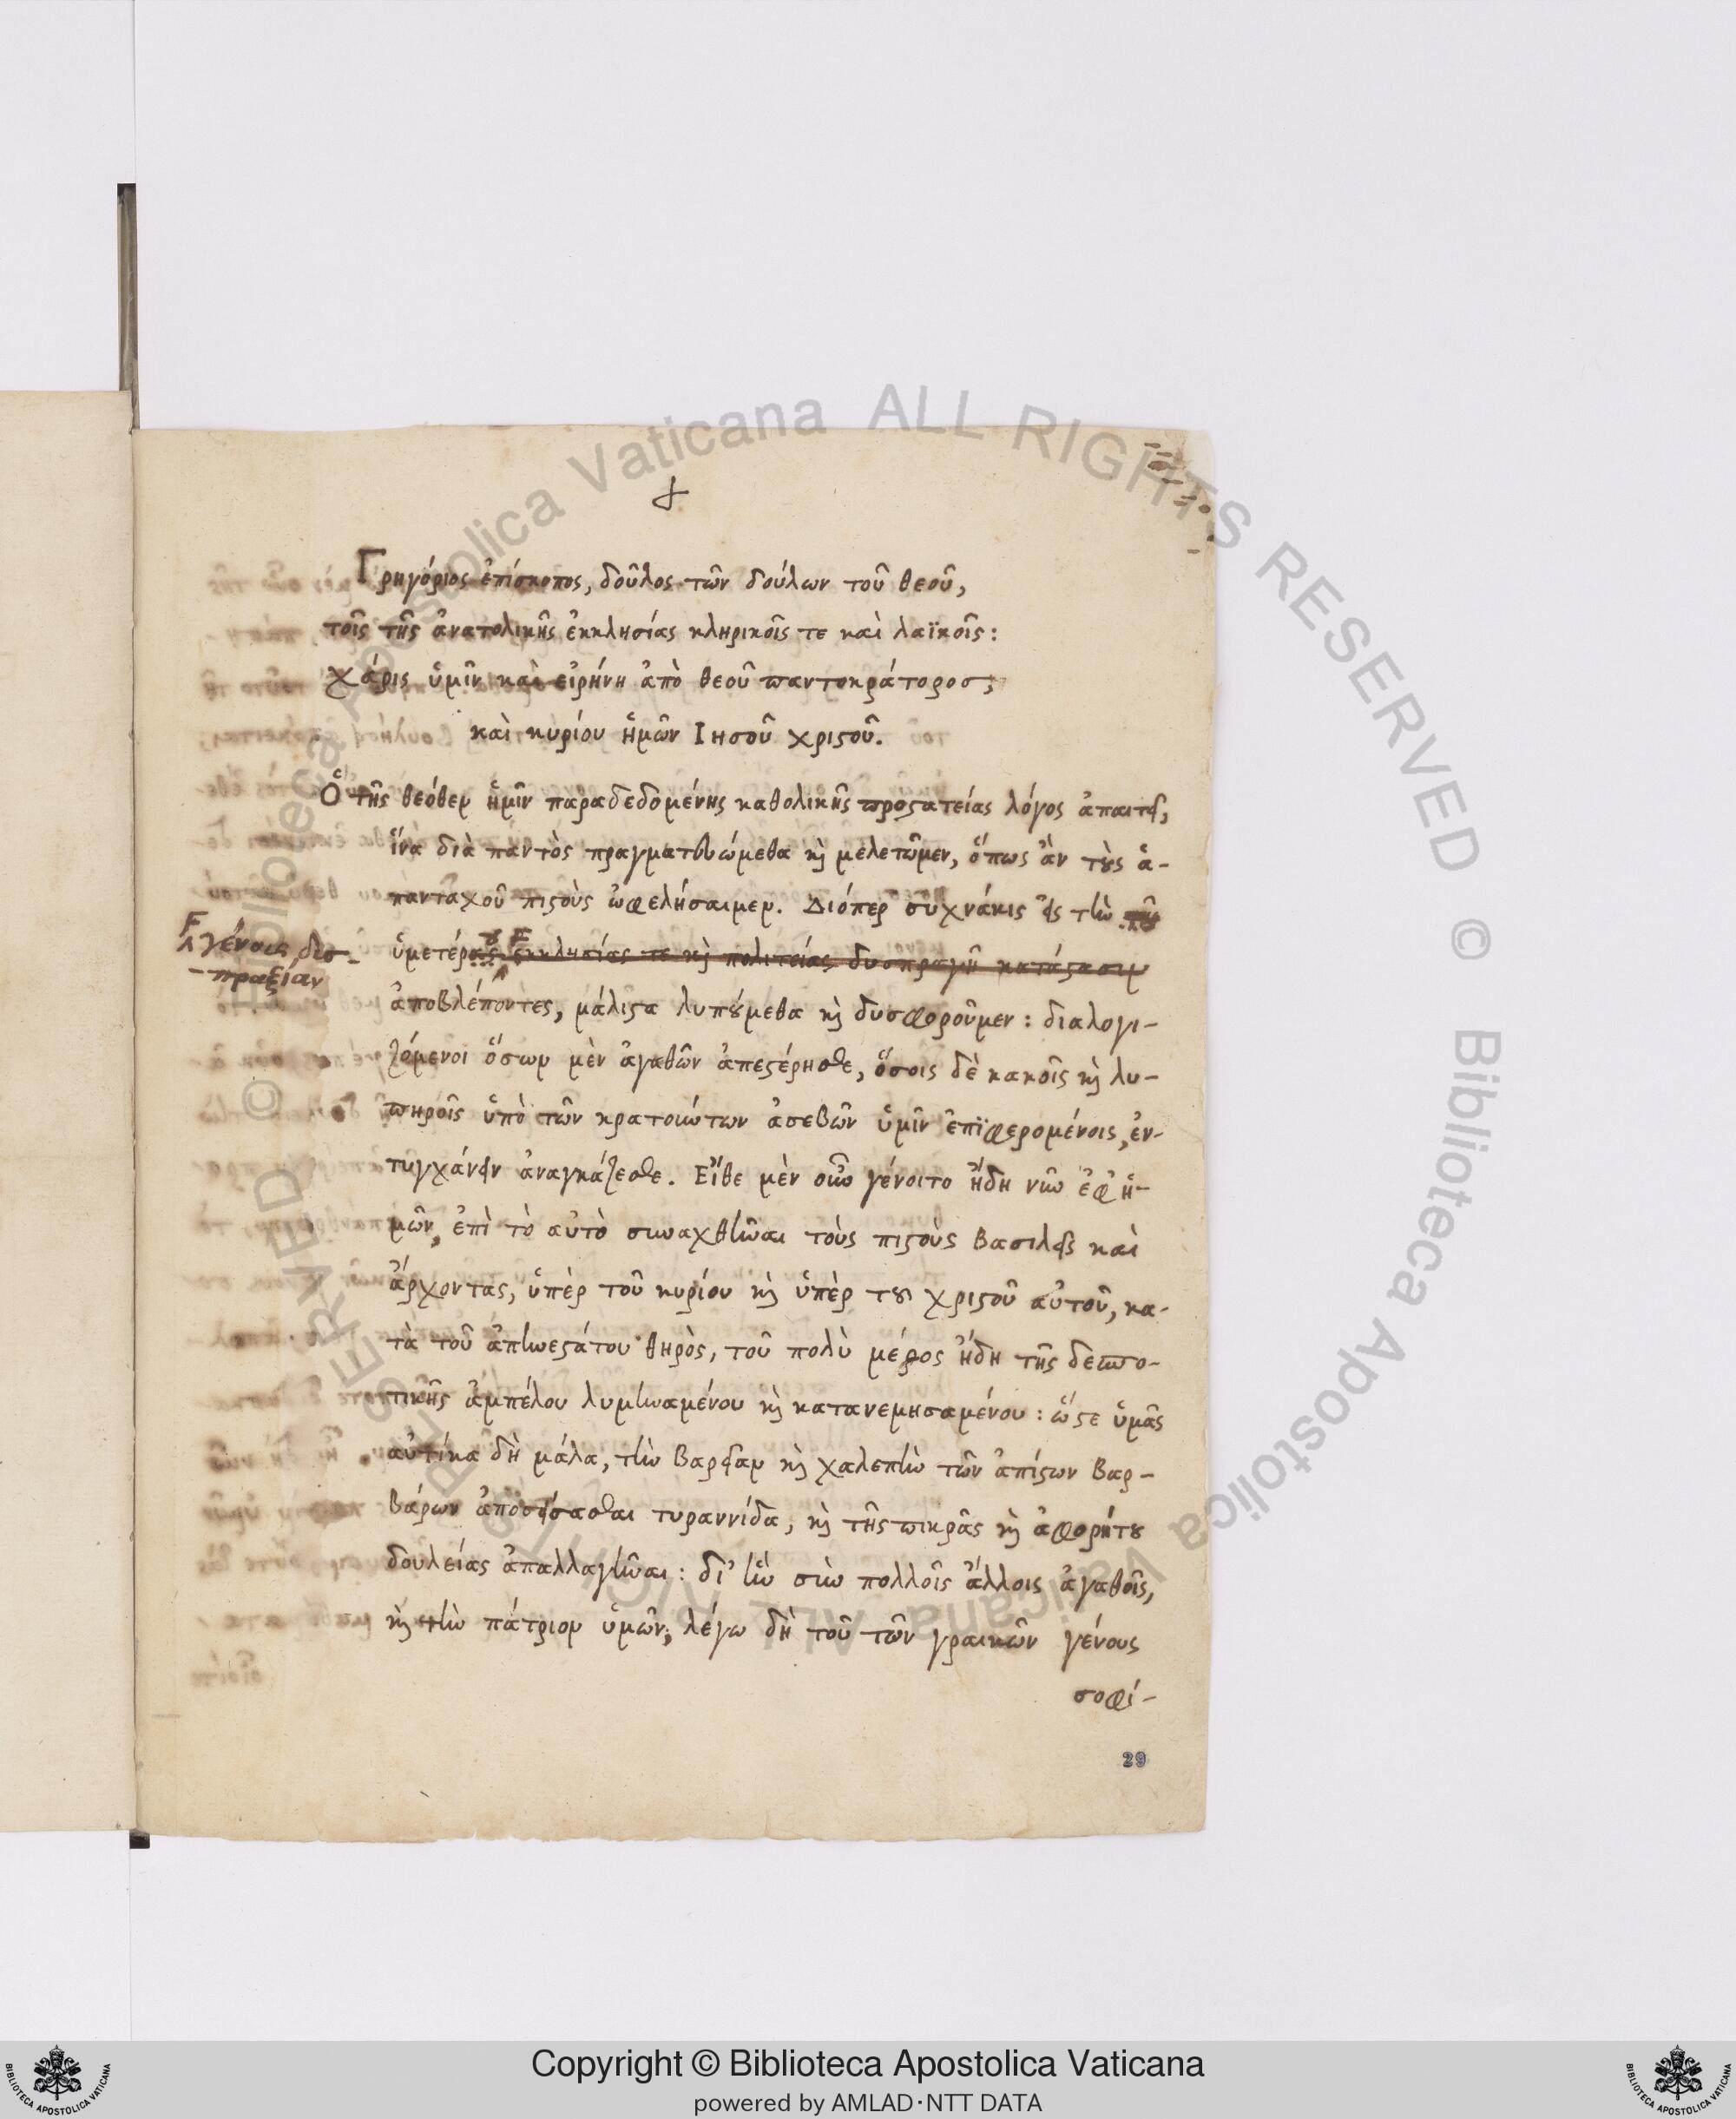 Γρηγόριος ἐπίσκοπος, δοῦλος τῶν δούλων τοῦ θεοῦ,
τοῖς τῆς ἀνατολικῆς ἐκκλησίας κληρικοῖς τε καὶ λαϊκοῖς:
Χάρις ὑμῖν καὶ εἰρήνη ἀπὸ θεοῦ παντοκράτορος,
καὶ κυρίου ἡμῶν Ιησοῦ χριϛοῦ.
Ὁ τῆς θεόθεν ἡμῖν παραδεδομένης καθολικῆς προϛατείας λόγος ἀπαιτεῖ,
ἵνα διὰ παντὸς πραγματευώμεθα κὶ μελετῶμεν, ὅπως ἂν τȣ̀ς ἁ-
πανταχοῦ πιϛοὺς ὠφελήσαιμεν. Διόπερ συχνάκις εἰς τὴν
γένοις δυσ-
πραξίαν
ὑμετέρας ἐκκλησίας τε κὶ πολιτείας δυσπραγῆ κατάϛασιν
ἀποβλέποντες, μάλιϛα λυπȣ́μεθα κὶ δυσφοροῦμεν: διαλογι-
ζόμενοι ὅσων μὲν ἀγαθῶν ἀπεϛέρησθε, ὅσοις δὲ κακοῖς κὶ λυ-
πηροῖς ὑπὸ τῶν κρατούντων ἀσεβῶν ὑμῖν ἐπϊφερομένοις, ἐν-
τυγχάνειν ἀναγκάζεσθε. Εἴθε μὲν οὖν γένοιτο ἤδη νῦν ἐφ ἡ-
μῶν, ἐπὶ τὸ αὐτὸ συναχθῆναι τοὺς πιϛοὺς βασιλεῖς καὶ
ἄρχοντας, ὑπὲρ τοῦ κυρίου κὶ ὑπὲρ τȣ͂ χριϛοῦ αὐτοῦ, κα-
τὰ τοῦ ἀπηνεϛάτου θηρὸς, τοῦ πολὺ μέρος ἤδη τῆς δεσπο-
τικῆς ἀμπέλου λυμηναμένου κὶ κατανεμησαμένου: ὥϛε ὑμᾶς
αὐτίκα δὴ μάλα, τὴν βαρεῖαν κὶ χαλεπὴν τῶν ἀπίϛων βαρ-
βάρων ἀποσείσασθαι τυραννίδα, κὶ τῆς πικρᾶς κὶ ἀφορήτȣ
δουλείας ἀπαλλαγῆναι: δι' ἣν σὺν πολλοῖς ἄλλοις ἀγαθοῖς,
κὶ τὴν πάτριον ὑμῶν, λέγω δὴ τοῦ τῶν γραικῶν γένους
σοφί-
29
© Biblioteca Apostolica Vaticana ALL RIGHTS RESERVED © Biblioteca Apostolica Vaticana ALL RIGHTS RESERVED
Copyright © Biblioteca Apostolica Vaticana
powered by AMLAD·NTT DATA
BIBLIOTECA APOSTOLICA VATICANA
BIBLIOTECA APOSTOLICA VATICANA